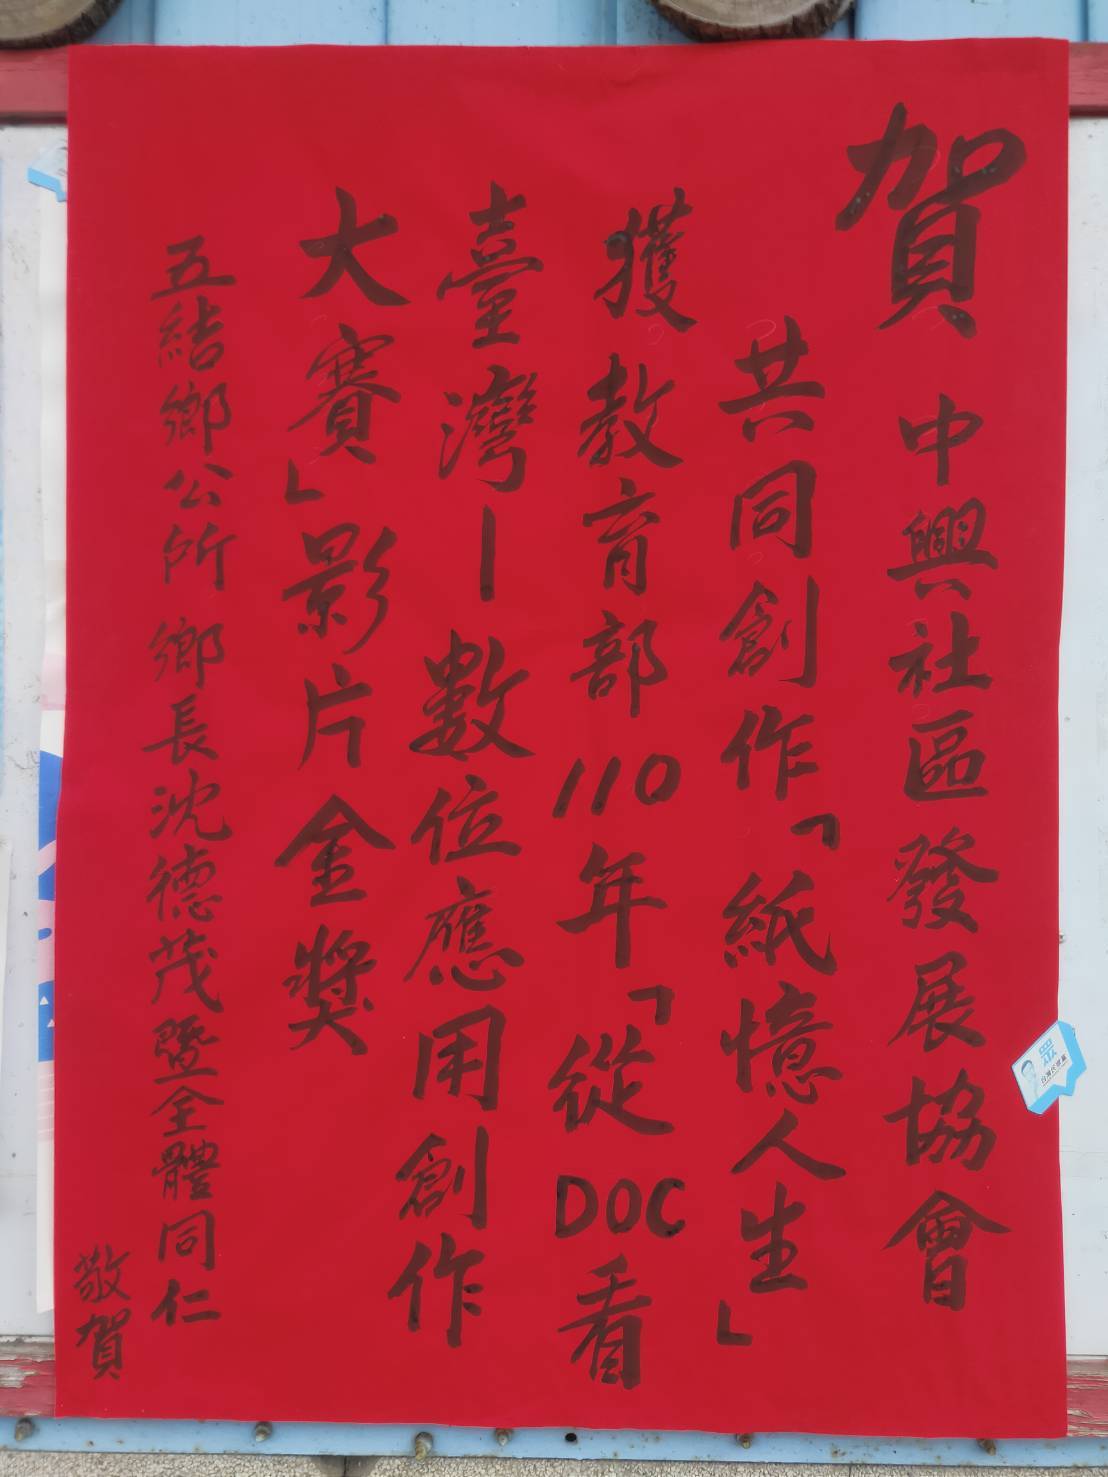 賀 中興社區發展協會
共同創作「紙憶人生」
獲教育部110年「從DOC看
臺灣－數位應用創作
大賽」影片金獎
五結鄉公所 鄉長沈德茂暨全體同仁
敬賀